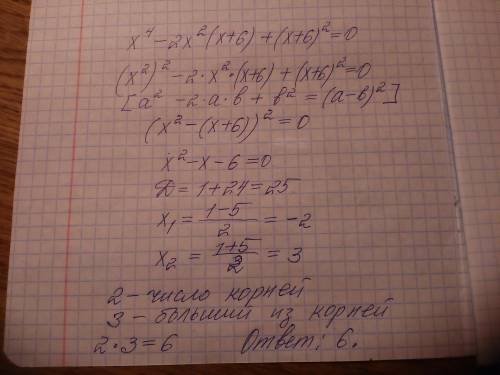 x⁴ − 2x²(x+6) + (x+6)² = 0
(x²)² − 2·x²·(x+6) + (x+6)² = 0
[a² − 2·a·в + в² = (a−в)²]
(x² − (x+6))² = 0
x² − x − 6 = 0
D = 1+24 = 25
x₁ = (1−5)/2 = −2
x₂ = (1+5)/2 = 3
2 – число корней
3 – больший из корней
2·3=6 Ответ: 6.